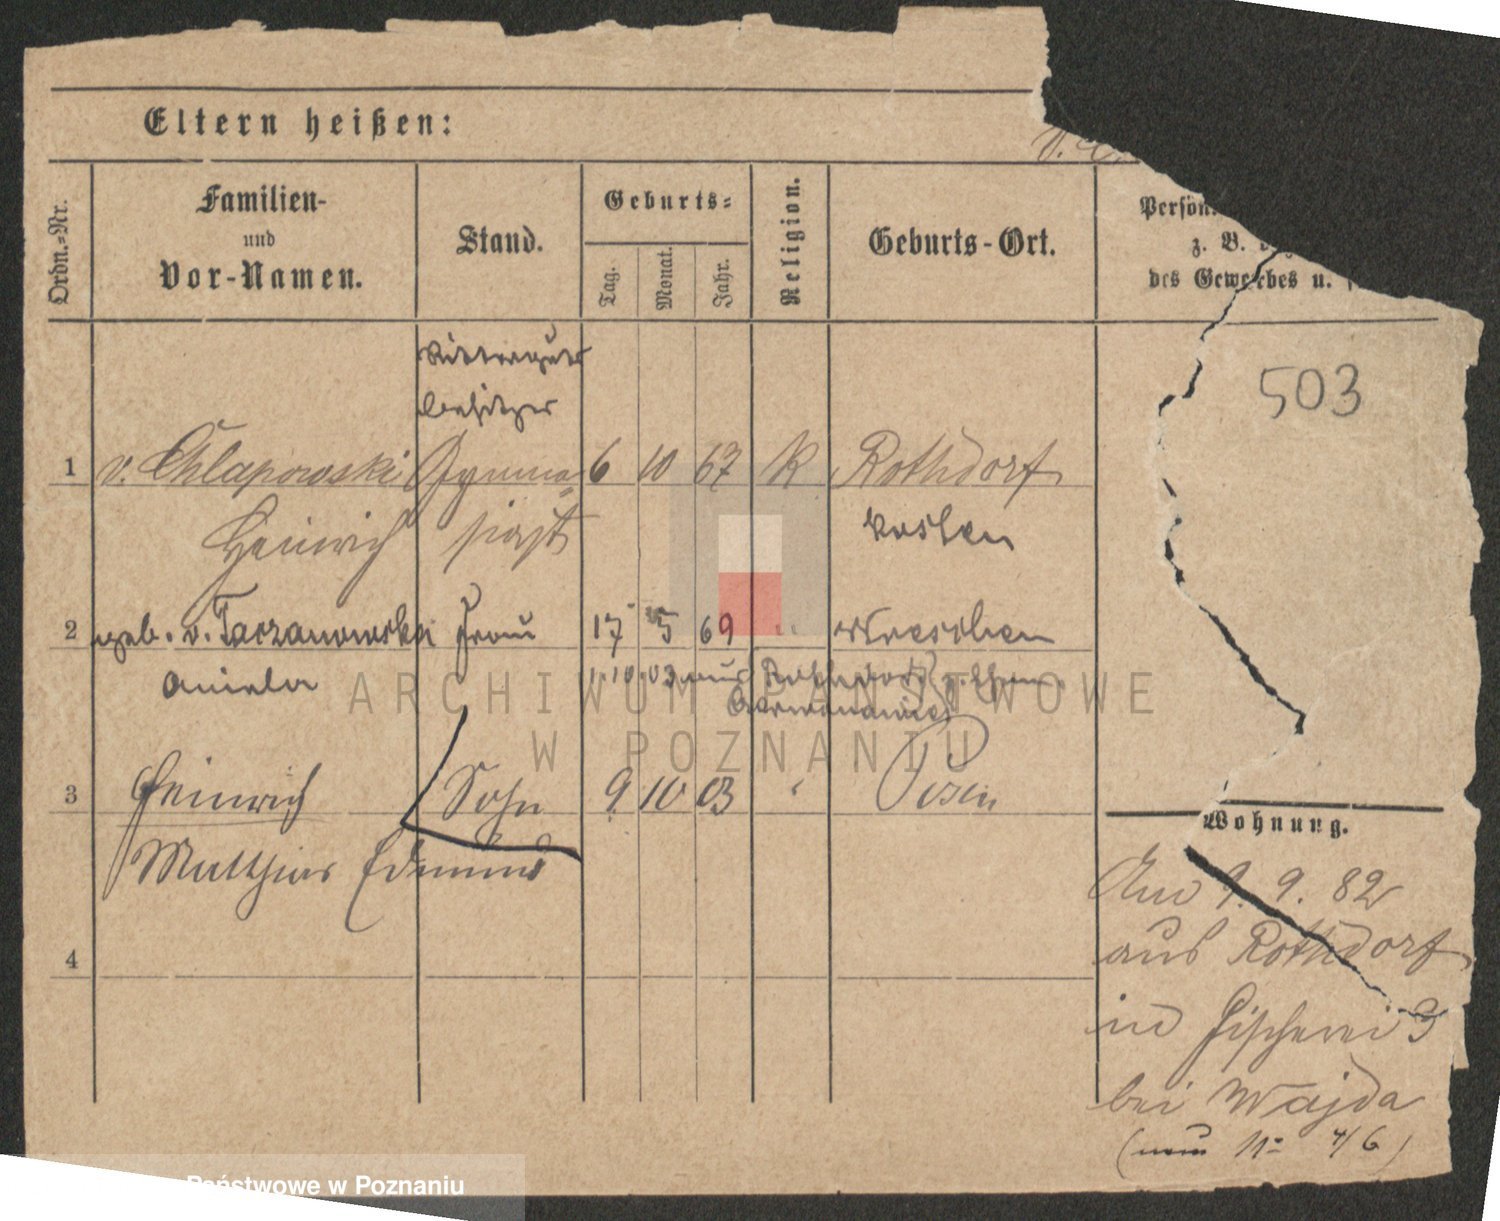 Eltern heißen:
Ordn.-Nr.
Familien-
und
Vor-Namen.
Stand.
Geburts-
Tag.
Monat.
Jahr.
Religion.
Geburts-Ort.
Persön
z. B.
des Gewerbes u.
503
Ritterguts
besitzer
1 v. Chlapowski Gymna- 6 10 67 K Rothdorf
Heinrich siast Kosten
2 geb. v. Tarzanowska Frau 17 5 69 " Wreschen
Aniela 1.10.03 aus Rothdorf
3 Heinrich Sohn 9 10 03 " Posen
Matthias Edmund
4
Wohnung.
Am 9. 9. 82
aus Rothdorf
in Fischerei 3
bei Wajda
(neu 11 4/6)
ARCHIWUM PAŃSTWOWE
W POZNANIU
Państwowe w Poznaniu